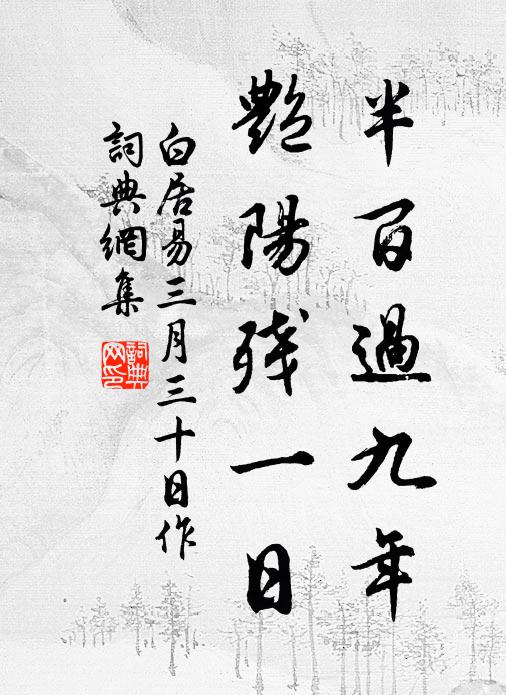 半百過九年
艷陽殘一日
白居易三月三十日作
詞典網集
詞典
网印